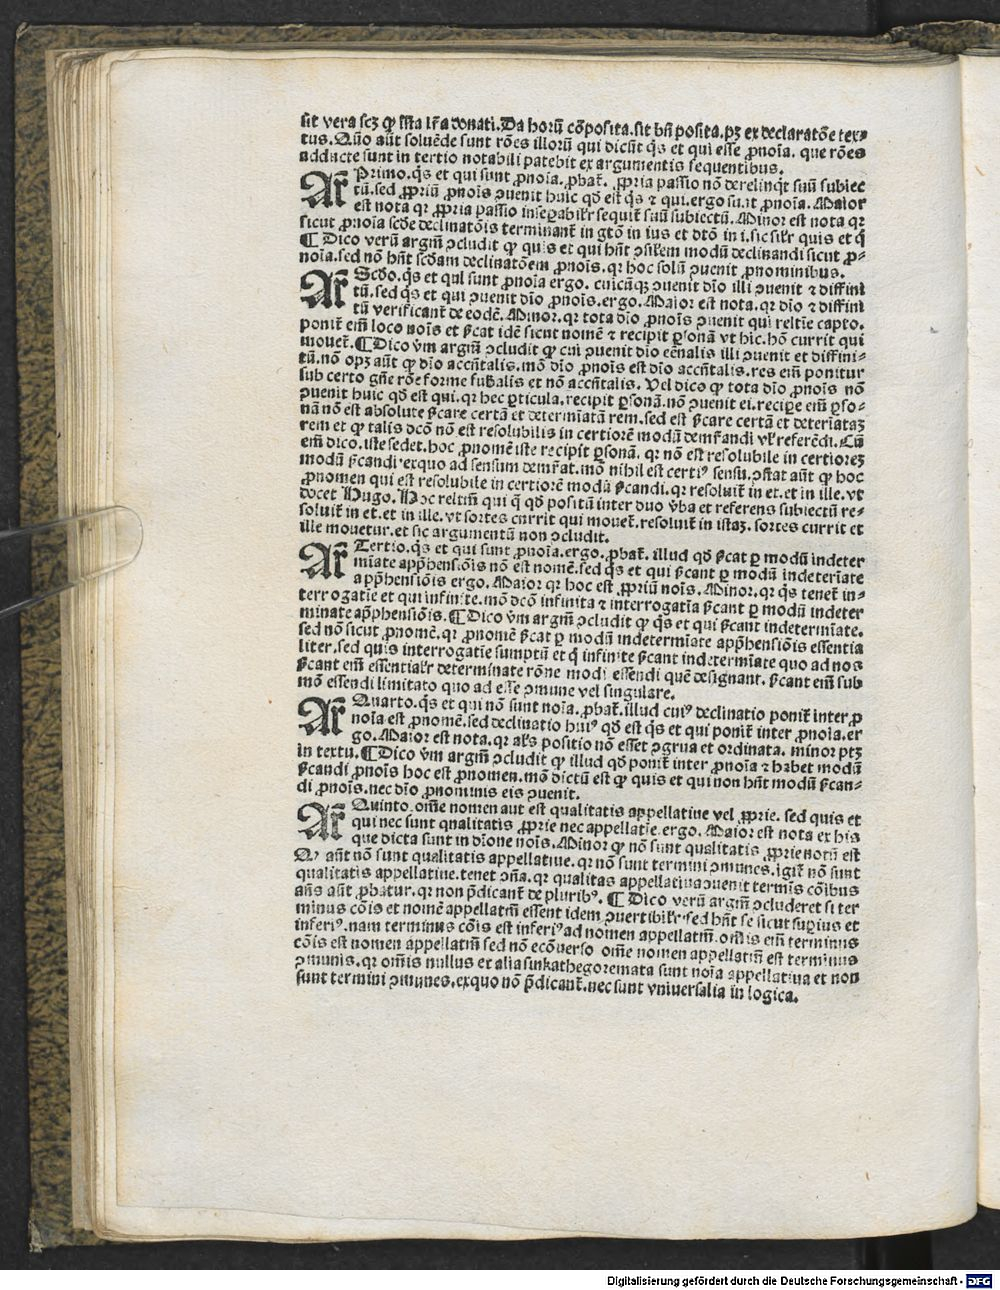 sit vera scz ꝙ ista lr̄a donati. Da horū cōposita. sit bn̄ posita. pȝ ex declaratōe tex⸗
tus. Quō aūt soluēde sunt rōes illorū qui dicūt q̄s et qui esse ꝓnoīa. que rōes
adducte sunt in tertio notabili patebit ex argumentis sequentibus.
Ar̄ Primo. q̄s et qui sunt ꝓnoīa. ꝓbat̄. ꝓpria passio nō derelinq̄t suū subiec
tū. sed ꝓpriū ꝓnoīs ↄuenit huic qd̄ est q̄s ⁊ qui. ergo sunt ꝓnoīa. Maior
est nota qr ꝓpria passio inseꝑabilr̄ sequit̄ suū subiectū. Minor est nota qr
sicut ꝓnoīa scd̄e declinatōis terminant̄ in gtō in ius et dtō in i. sic silr̄ quis et q̄
¶ Dico verū argm̄ ↄcludit ꝙ quis et qui hn̄t ↄsilem modū declinandi sicut ꝓ⸗
noīa. sed nō hn̄t scd̄am declinatōem ꝓnoīs. qr hoc solū ↄuenit ꝓnominibus.
Ar̄ Scd̄o. q̄s et qui sunt ꝓnoīa ergo. cuicūqȝ ↄuenit dīo illi ↄuenit ⁊ diffini
tū. sed q̄s et qui ↄuenit dīo ꝓnoīs. ergo. Maior est nota. qr dīo ⁊ diffini
tū verificant̄ de eodē. Minor. qr tota dīo ꝓnoīs ↄuenit qui reltīe capto.
ponit̄ em̄ loco noīs et s̄cat idē sicut nomē ⁊ recipit ꝑsonā vt hic. hō currit qui
mouet̄. ¶ Dico vm̄ argm̄ ↄcludit ꝙ cui ↄuenit dīo eēnalis illi ↄuenit et diffini⸗
tū. nō opȝ aūt ꝙ dīo accn̄talis. mō dīo ꝓnoīs est dīo accn̄talis. res em̄ ponitur
sub certo gn̄e rōe forme sub̄alis et nō accn̄talis. Vel dico ꝙ tota dīo ꝓnoīs nō
ↄuenit huic qd̄ est qui. qr hec ꝑticula. recipit ꝑsonā. nō ↄuenit ei. recipe em̄ ꝑso⸗
nā nō est absolute s̄care certā et determīatā rem. sed est s̄care certā et deterīataȝ
rem et ꝙ talis dcō nō est resolubilis in certiorē modū demr̄andi vl̄ referēdi. Cū
em̄ dico. iste sedet. hoc ꝓnomē iste recipit ꝑsonā. qr nō est resolubile in certioreȝ
modū s̄candi. exquo ad sensum demr̄at. mō nihil est certiꝰ sensu. ↄstat aūt ꝙ hoc
ꝓnomen qui est resolubile in certiorē modū s̄candi. qr resoluit̄ in et. et in ille. vt
docet Hugo. Hoc reltm̄ qui q̄ qd̄ positū inter duo v̄ba et referens subiectū re⸗
soluit̄ in et. et in ille. vt sortes currit qui mouet̄. resoluit̄ in istaȝ. sortes currit et
ille mouetur. et sic argumentū non ↄcludit.
Ar̄ Tertio. q̄s et qui sunt ꝓnoīa. ergo. ꝓbat̄. illud qd̄ s̄cat ꝑ modū indeter
mīate apph̄ensiōis nō est nomē. sed q̄s et qui s̄cant ꝑ modū indeterīate
apph̄ensiōis ergo. Maior qr hoc est ꝓpriū noīs. Minor. qr q̄s tenet̄ in⸗
terrogatie et qui infinite. mō dcō infinita ⁊ interrogatīa s̄cant ꝑ modū indeter
minate apph̄ensiōis. ¶ Dico vm̄ argm̄ ↄcludit ꝙ q̄s et qui s̄cant indetermīate.
sed nō sicut ꝓnomē. qr ꝓnomē s̄cat ꝑ modū indetermīate apph̄ensiōis essentia
liter. sed quis interrogatie sumptū et q̄ infinite s̄cant indetermīate quo ad nos
s̄cant em̄ essentialr̄ determinate rōne modi essendi quē designant. s̄cant em̄ sub
mō essendi limitato quo ad esse ↄmune vel singulare.
Ar̄ Quarto. q̄s et qui nō sunt noīa. ꝓbat̄. illud cuiꝰ declinatio ponit̄ inter ꝓ
noīa est ꝓnomē. sed declinatio huiꝰ qd̄ est q̄s et qui ponit̄ inter ꝓnoīa. er
go. Maior est nota. qr als̄ positio nō esset ↄgrua et ordinata. minor ptȝ
in textu. ¶ Dico vm̄ argm̄ ↄcludit ꝙ illud qd̄ ponit̄ inter ꝓnoīa ⁊ habet modū
s̄candi ꝓnoīs hoc est ꝓnomen. mō dictū est ꝙ quis et qui non hn̄t modū s̄can⸗
di ꝓnoīs. nec dīo ꝓnominis eis ↄuenit.
Ar̄ Quinto. om̄e nomen aut est qualitatis appellatiue vel ꝓprie. sed quis et
qui nec sunt qualitatis ꝓprie nec appellatīe. ergo. Maior est nota ex his
que dicta sunt in dīone noīs. Minor ꝙ nō sunt qualitatis ꝓprie notū est
Qꝛ aūt nō sunt qualitatis appellatiue. qr nō sunt termini ↄmunes. igit̄ nō sunt
qualitatis appellatiue. tenet ↄn̄a. qr qualitas appellatiua ↄuenit termīs cōibus
an̄s aūt ꝓbatur. qr non p̄dicant̄ de pluribꝰ. ¶ Dico verū argm̄ ↄcluderet si ter
minus cōis et nomē appellatm̄ essent idem ↄuertibilr̄. sed hn̄t se sicut suꝑius et
inferiꝰ. nam terminus cōis est inferiꝰ ad nomen appellatm̄. om̄is em̄ terminus
cōis est nomen appellatm̄ sed nō ecōuerso om̄e nomen appellatm̄ est terminus
ↄmunis. qr om̄is nullus et alia sinkathegoremata sunt noīa appellatiua et non
sunt termini ↄmunes. exquo nō p̄dicant̄. nec sunt vniuersalia in logica.
Digitalisierung gefördert durch die Deutsche Forschungsgemeinschaft - DFG